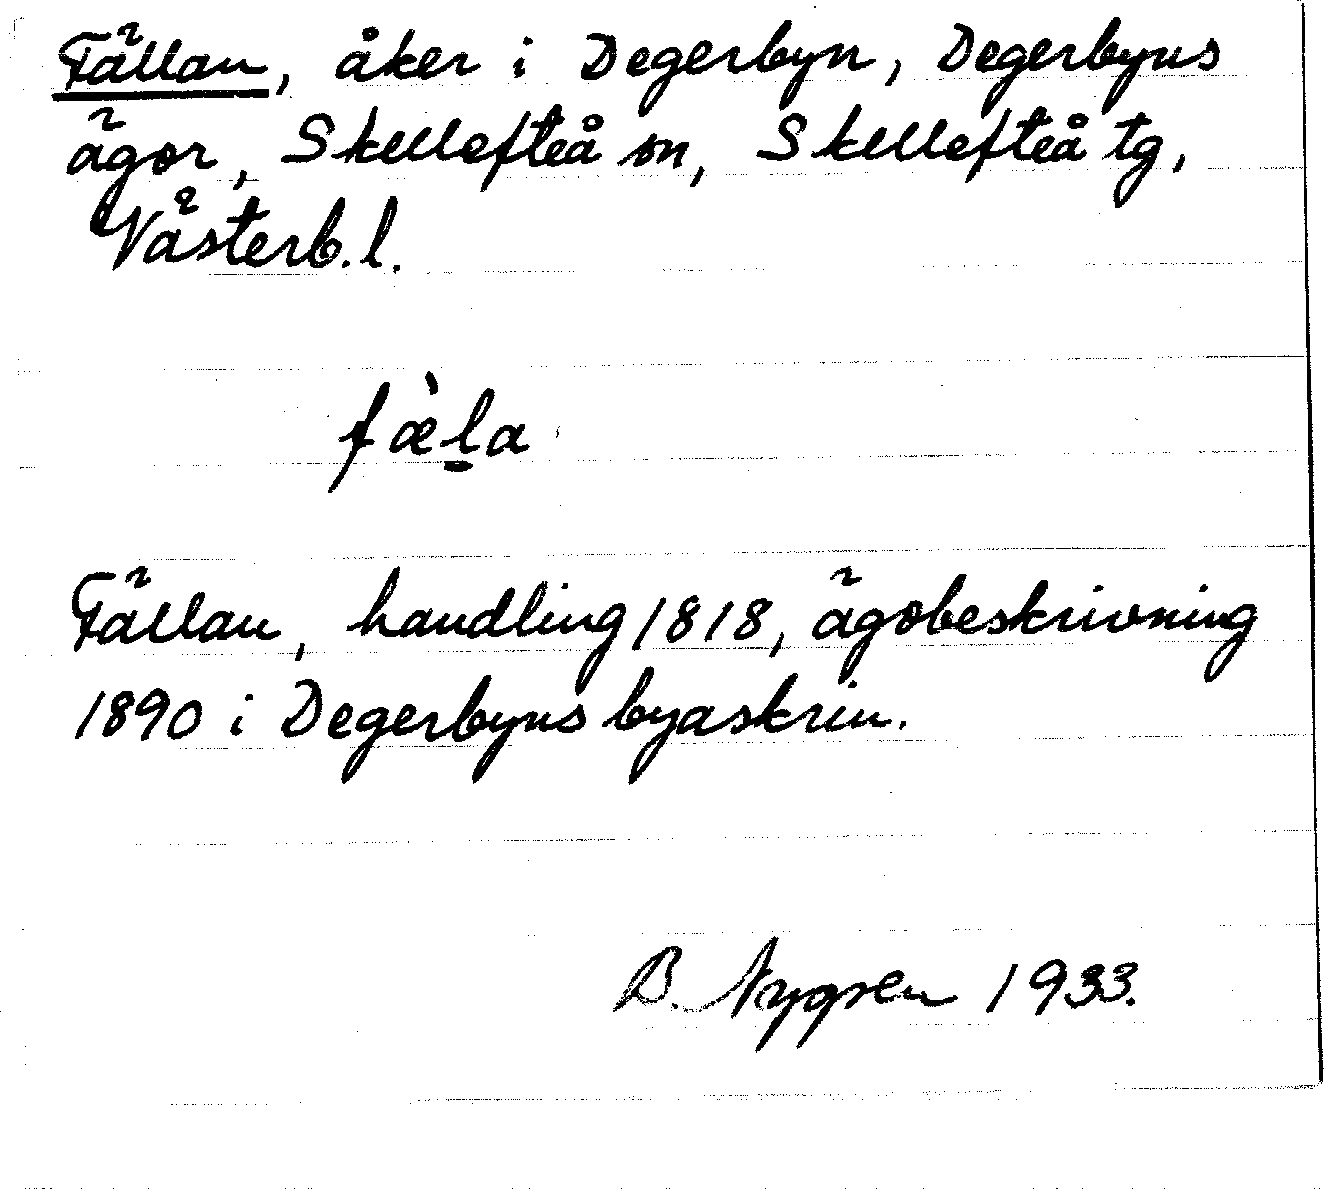 Fällan, åker i Degerbyn, Degerbyns
ägor, Skellefteå sn, Skellefteå tg,
Västerb. l.
fæ̀l̠a
Fällan, handling 1818, ägobeskrivning
1890 i Degerbyns byaskrin.
B. Nygren 1933.